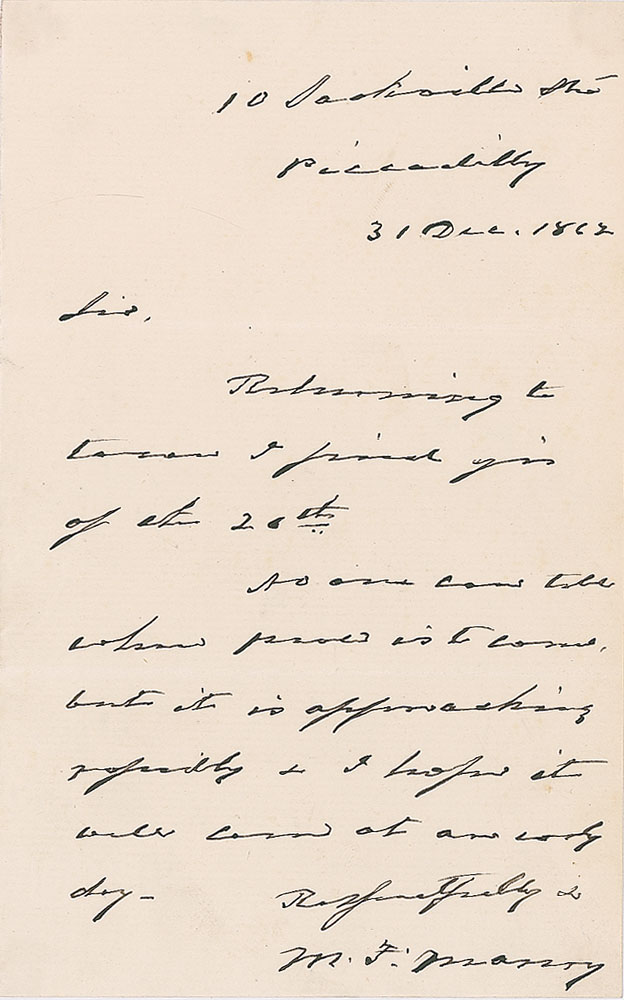 10 Sackville Str
Piccadilly
31 Dec. 1862
Sir,
Returning to
town I find yrs
of the 26th
No one can tell
when peace is to come,
but it is approaching
rapidly & I hope it
will come at an early
day -
Respectfully &
M. F. Maury